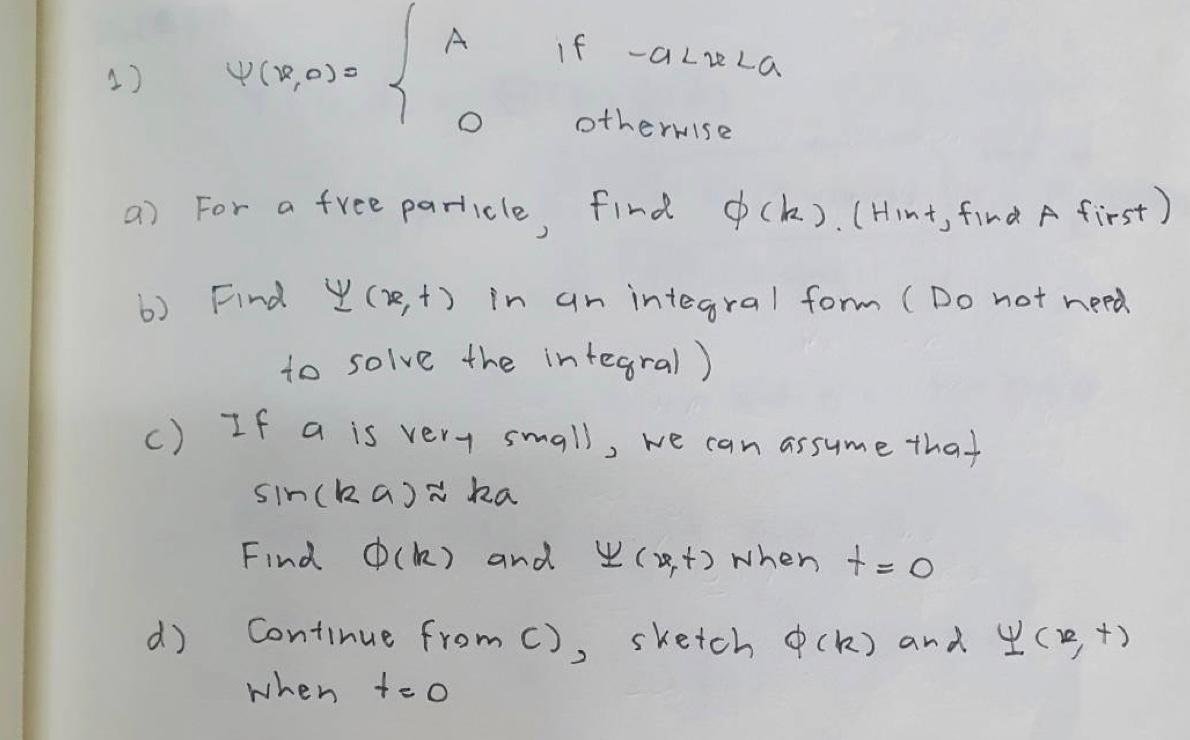 1) Ψ(x,0) = { A if -a<x<a
0 otherwise
a) For a free particle, find ϕ(k). (Hint, find A first)
b) Find Ψ(x,t) in an integral form (Do not need
to solve the integral)
c) If a is very small, we can assume that
sin(ka) ≈ ka
Find ϕ(k) and Ψ(x,t) when t = 0
d) Continue from c), sketch ϕ(k) and Ψ(x,t)
when t = 0